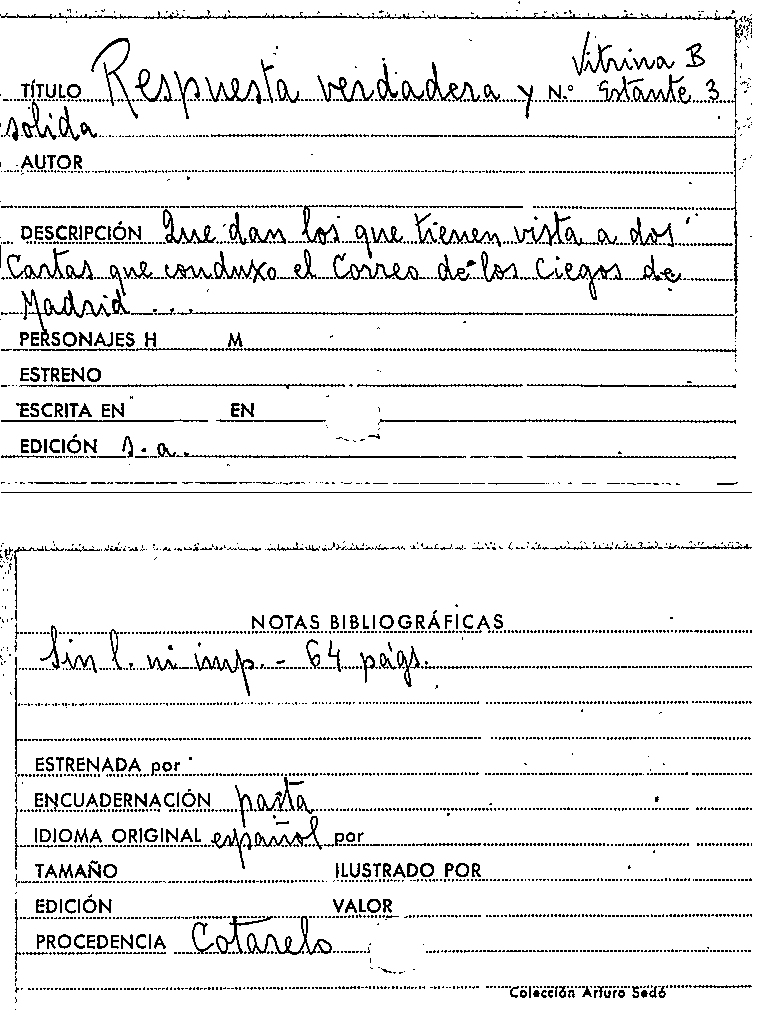 Vitrina B
TÍTULO Respuesta verdadera y N.º Estante 3
solida
AUTOR
DESCRIPCIÓN Que dan los que tienen vista a dos
Cartas que conduxo el Correo de los Ciegos de
Madrid ...
PERSONAJES H M
ESTRENO
ESCRITA EN EN
EDICIÓN s.a.
NOTAS BIBLIOGRÁFICAS
Sin l. ni imp. - 64 págs.
ESTRENADA por
ENCUADERNACIÓN pasta
IDIOMA ORIGINAL español por
TAMAÑO ILUSTRADO POR
EDICIÓN VALOR
PROCEDENCIA Cotarelo
Colección Arturo Sedó